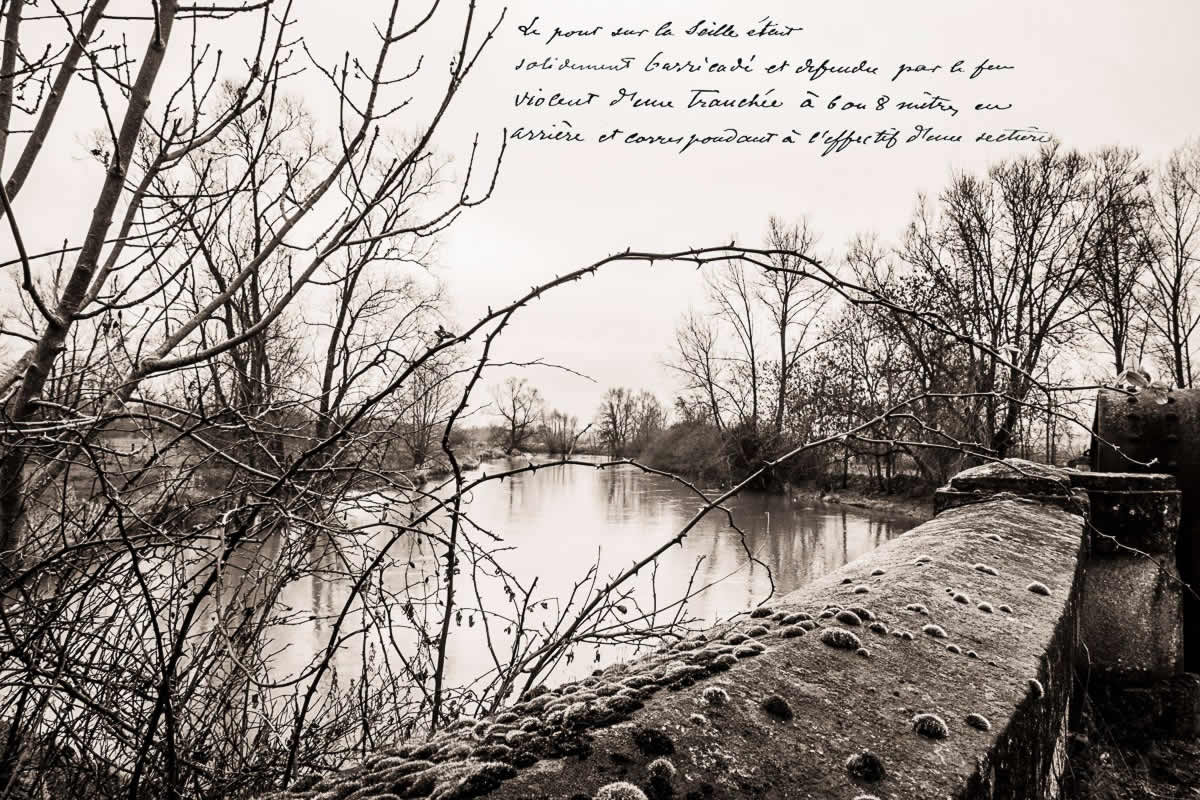 Le pont sur la Seille était
solidement barricadé et défendu par le feu
violent d'une tranchée à 6 ou 8 mètres en
arrière et correspondant à l'effectif d'une section